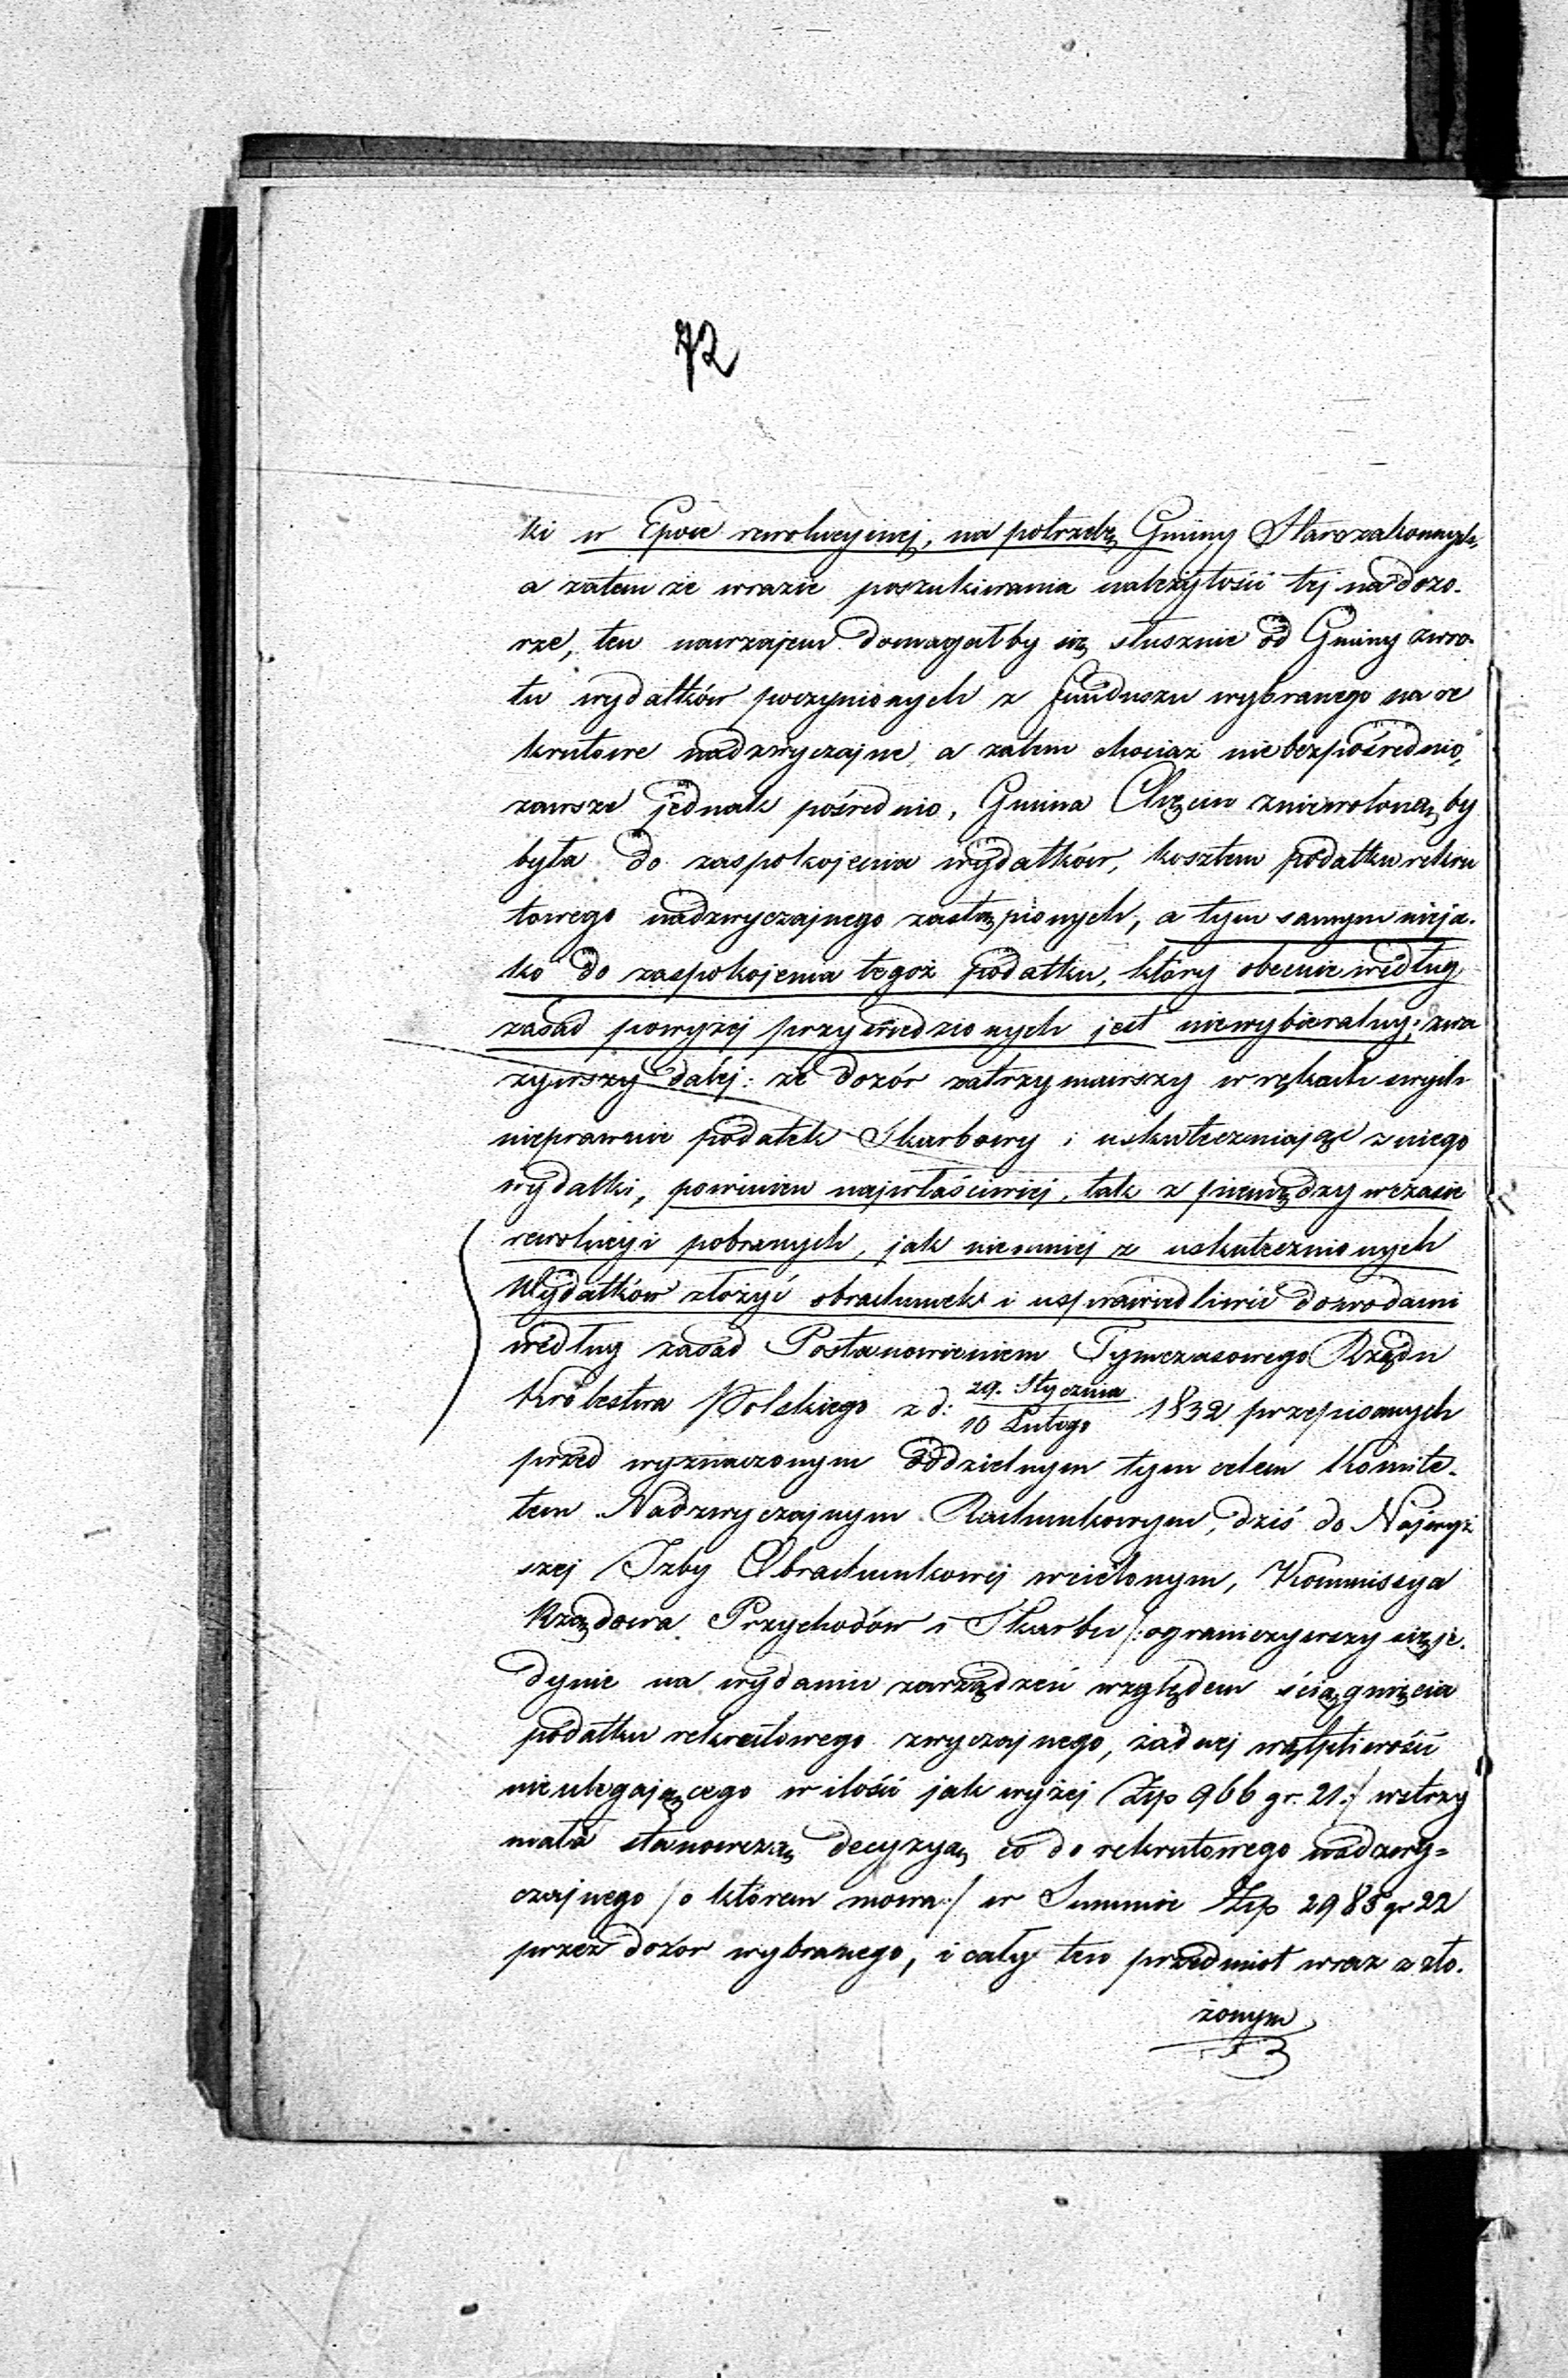 72
ki w Epoce rewolucyinej, na potrzebę Gminy Starozakonnych,
a zatem że wrazie poszukiwania należytości tej na dozo-
rze, ten nawzajem domagałby się słusznie od Gminy zwro-
tu wydatków poczynionych z funduszu wybranego na re
krutowe nadzwyczajne, a zatem chociaż niebezpośrednio,
zawsze jednak pośrednio, Gmina Chęcin zniewoloną by
była do zaspokojenia wydatków, kosztem podatku rekru
towego nadzwyczajnego zastąpionych, a tym samym nieja-
ko do zaspokojenia tegoż podatku, który obecnie według
zasad powyżej przywiedzionych jest niewybieralny; zwa
żywszy dalej: że dozór zatrzymawszy w rękach swych
nieprawnie podatek Skarbowy i uskuteczniając z niego
wydatki, powinien najwłaściwiej, tak z pieniędzy wczasie
rewolucyi pobranych, jak niemniej z uskutecznionych
Wydatków złożyć obrachunek i usprawiedliwić dowodami
według zasad Postanowieniem Tymczasowego Rządu
Królestwa Polskiego z d: 29. Stycznia / 10 Lutego 1832 przepisanych
przed wyznaczonym oddzielnym tym celem Komite-
tem Nadzwyczajnym Rachunkowym, dziś do Najwyż
szej Izby Obrachunkowej wcielonym, Kommissya
Rządowa Przychodów i Skarbu /:ograniczywszy się je-
dynie na wydaniu zarządzeń względem ściągnięcia
podatku rekrutowego zwyczajnego, żadnej wątpliwości
nieulegającego w ilości jak wyżej Złp 966 gr. 21:/ wstrzy
mała stanowczą decyzyą co do rekrutowego nadzwy=
czajnego /o którem mowa:/ w Summie Złp 2985 gr 22
przez dozór wybranego, i cały ten przedmiot wraz z zło-
żonym